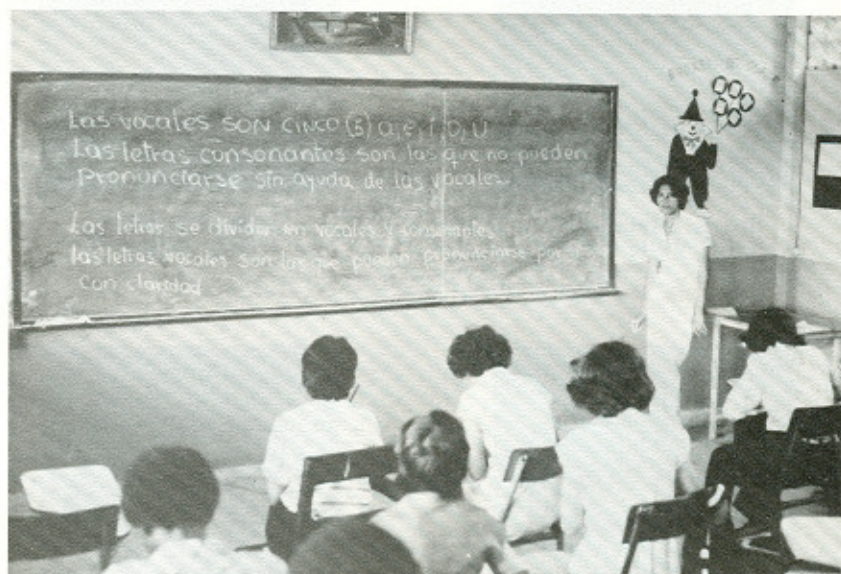 Las vocales SON CINCO (5) a, e, i, O, U
Las letras consonantes son las que no pueden
Pronunciarse sin ayuda de las vocales.
Las letras se dividen en vocales y consonantes
las letras vocales son las que pueden pronunciarse por
con claridad